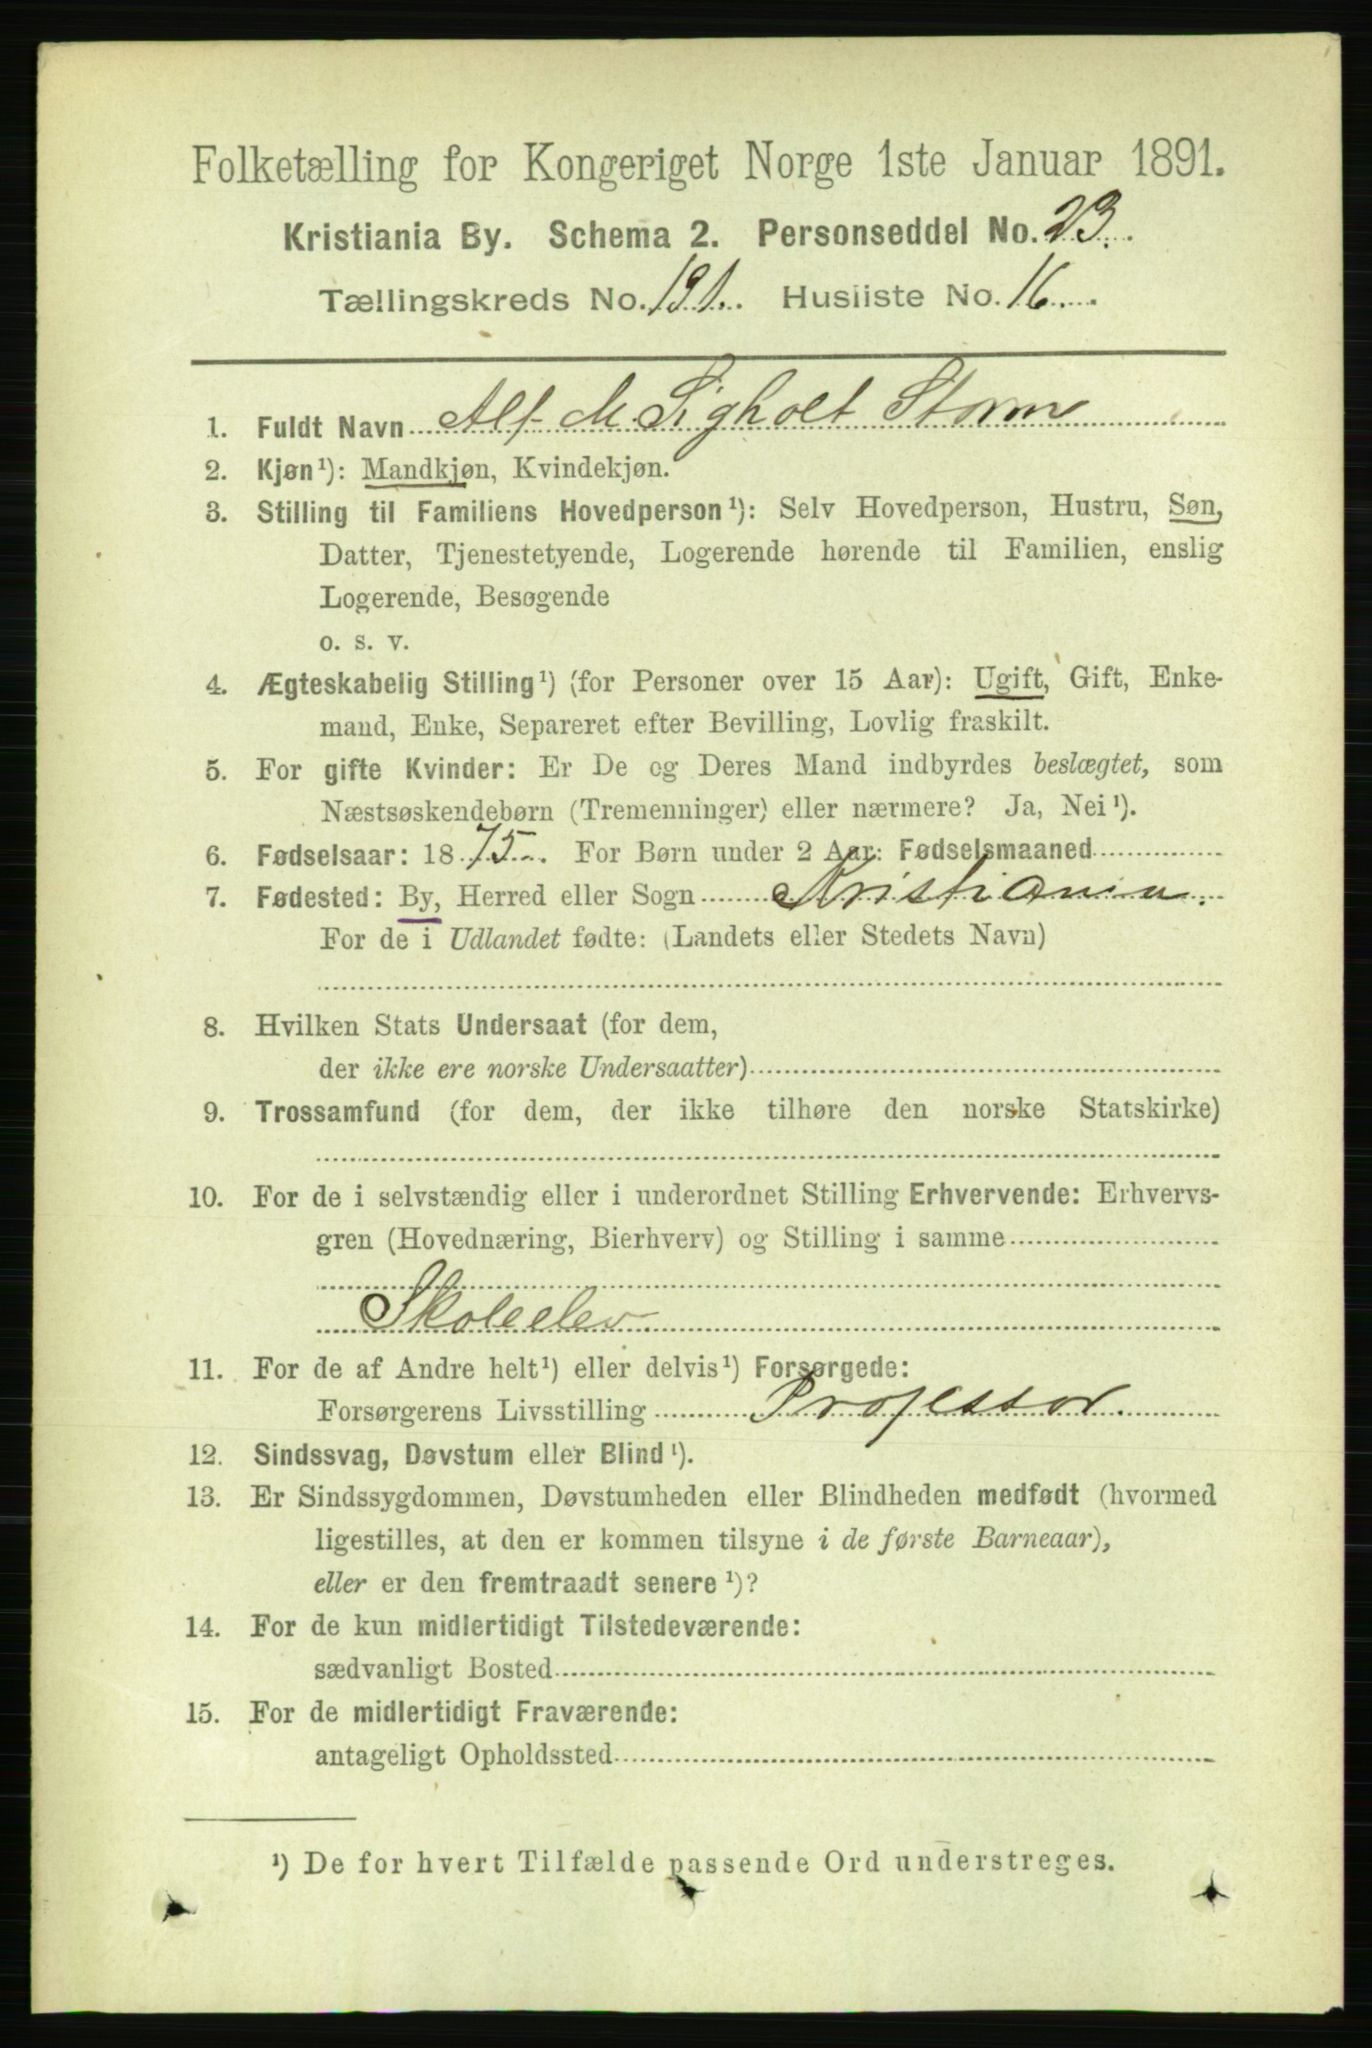 Folketælling for Kongeriget Norge 1ste Januar 1891.
Kristiania By. Schema 2. Personseddel No. 23.
Tællingskreds No. 191. Husliste No. 16
1. Fuldt Navn Alf de Sigholt Storm
2. Kjøn¹): Mandkjøn, Kvindekjøn.
3. Stilling til Familiens Hovedperson¹): Selv Hovedperson, Hustru, Søn,
Datter, Tjenestetyende, Logerende hørende til Familien, enslig
Logerende, Besøgende
o. s. v.
4. Ægteskabelig Stilling¹) (for Personer over 15 Aar): Ugift, Gift, Enke-
mand, Enke, Separeret efter Bevilling, Lovlig fraskilt.
5. For gifte Kvinder: Er De og Deres Mand indbyrdes beslægtet, som
Næstsøskendebørn (Tremenninger) eller nærmere? Ja, Nei¹).
6. Fødselsaar: 1875. For Børn under 2 Aar: Fødselsmaaned
7. Fødested: By, Herred eller Sogn Kristiania.
For de i Udlandet fødte: (Landets eller Stedets Navn)
8. Hvilken Stats Undersaat (for dem,
der ikke ere norske Undersaatter)
9. Trossamfund (for dem, der ikke tilhøre den norske Statskirke)
10. For de i selvstændig eller i underordnet Stilling Erhvervende: Erhvervs-
gren (Hovednæring, Bierhverv) og Stilling i samme
Skoleelev
11. For de af Andre helt¹) eller delvis¹) Forsørgede:
Forsørgerens Livsstilling Professor.
12. Sindssvag, Døvstum eller Blind¹).
13. Er Sindssygdommen, Døvstumheden eller Blindheden medfødt (hvormed
ligestilles, at den er kommen tilsyne i de første Barneaar),
eller er den fremtraadt senere¹)?
14. For de kun midlertidigt Tilstedeværende:
sædvanligt Bosted
15. For de midlertidigt Fraværende:
antageligt Opholdssted
¹) De for hvert Tilfælde passende Ord understreges.